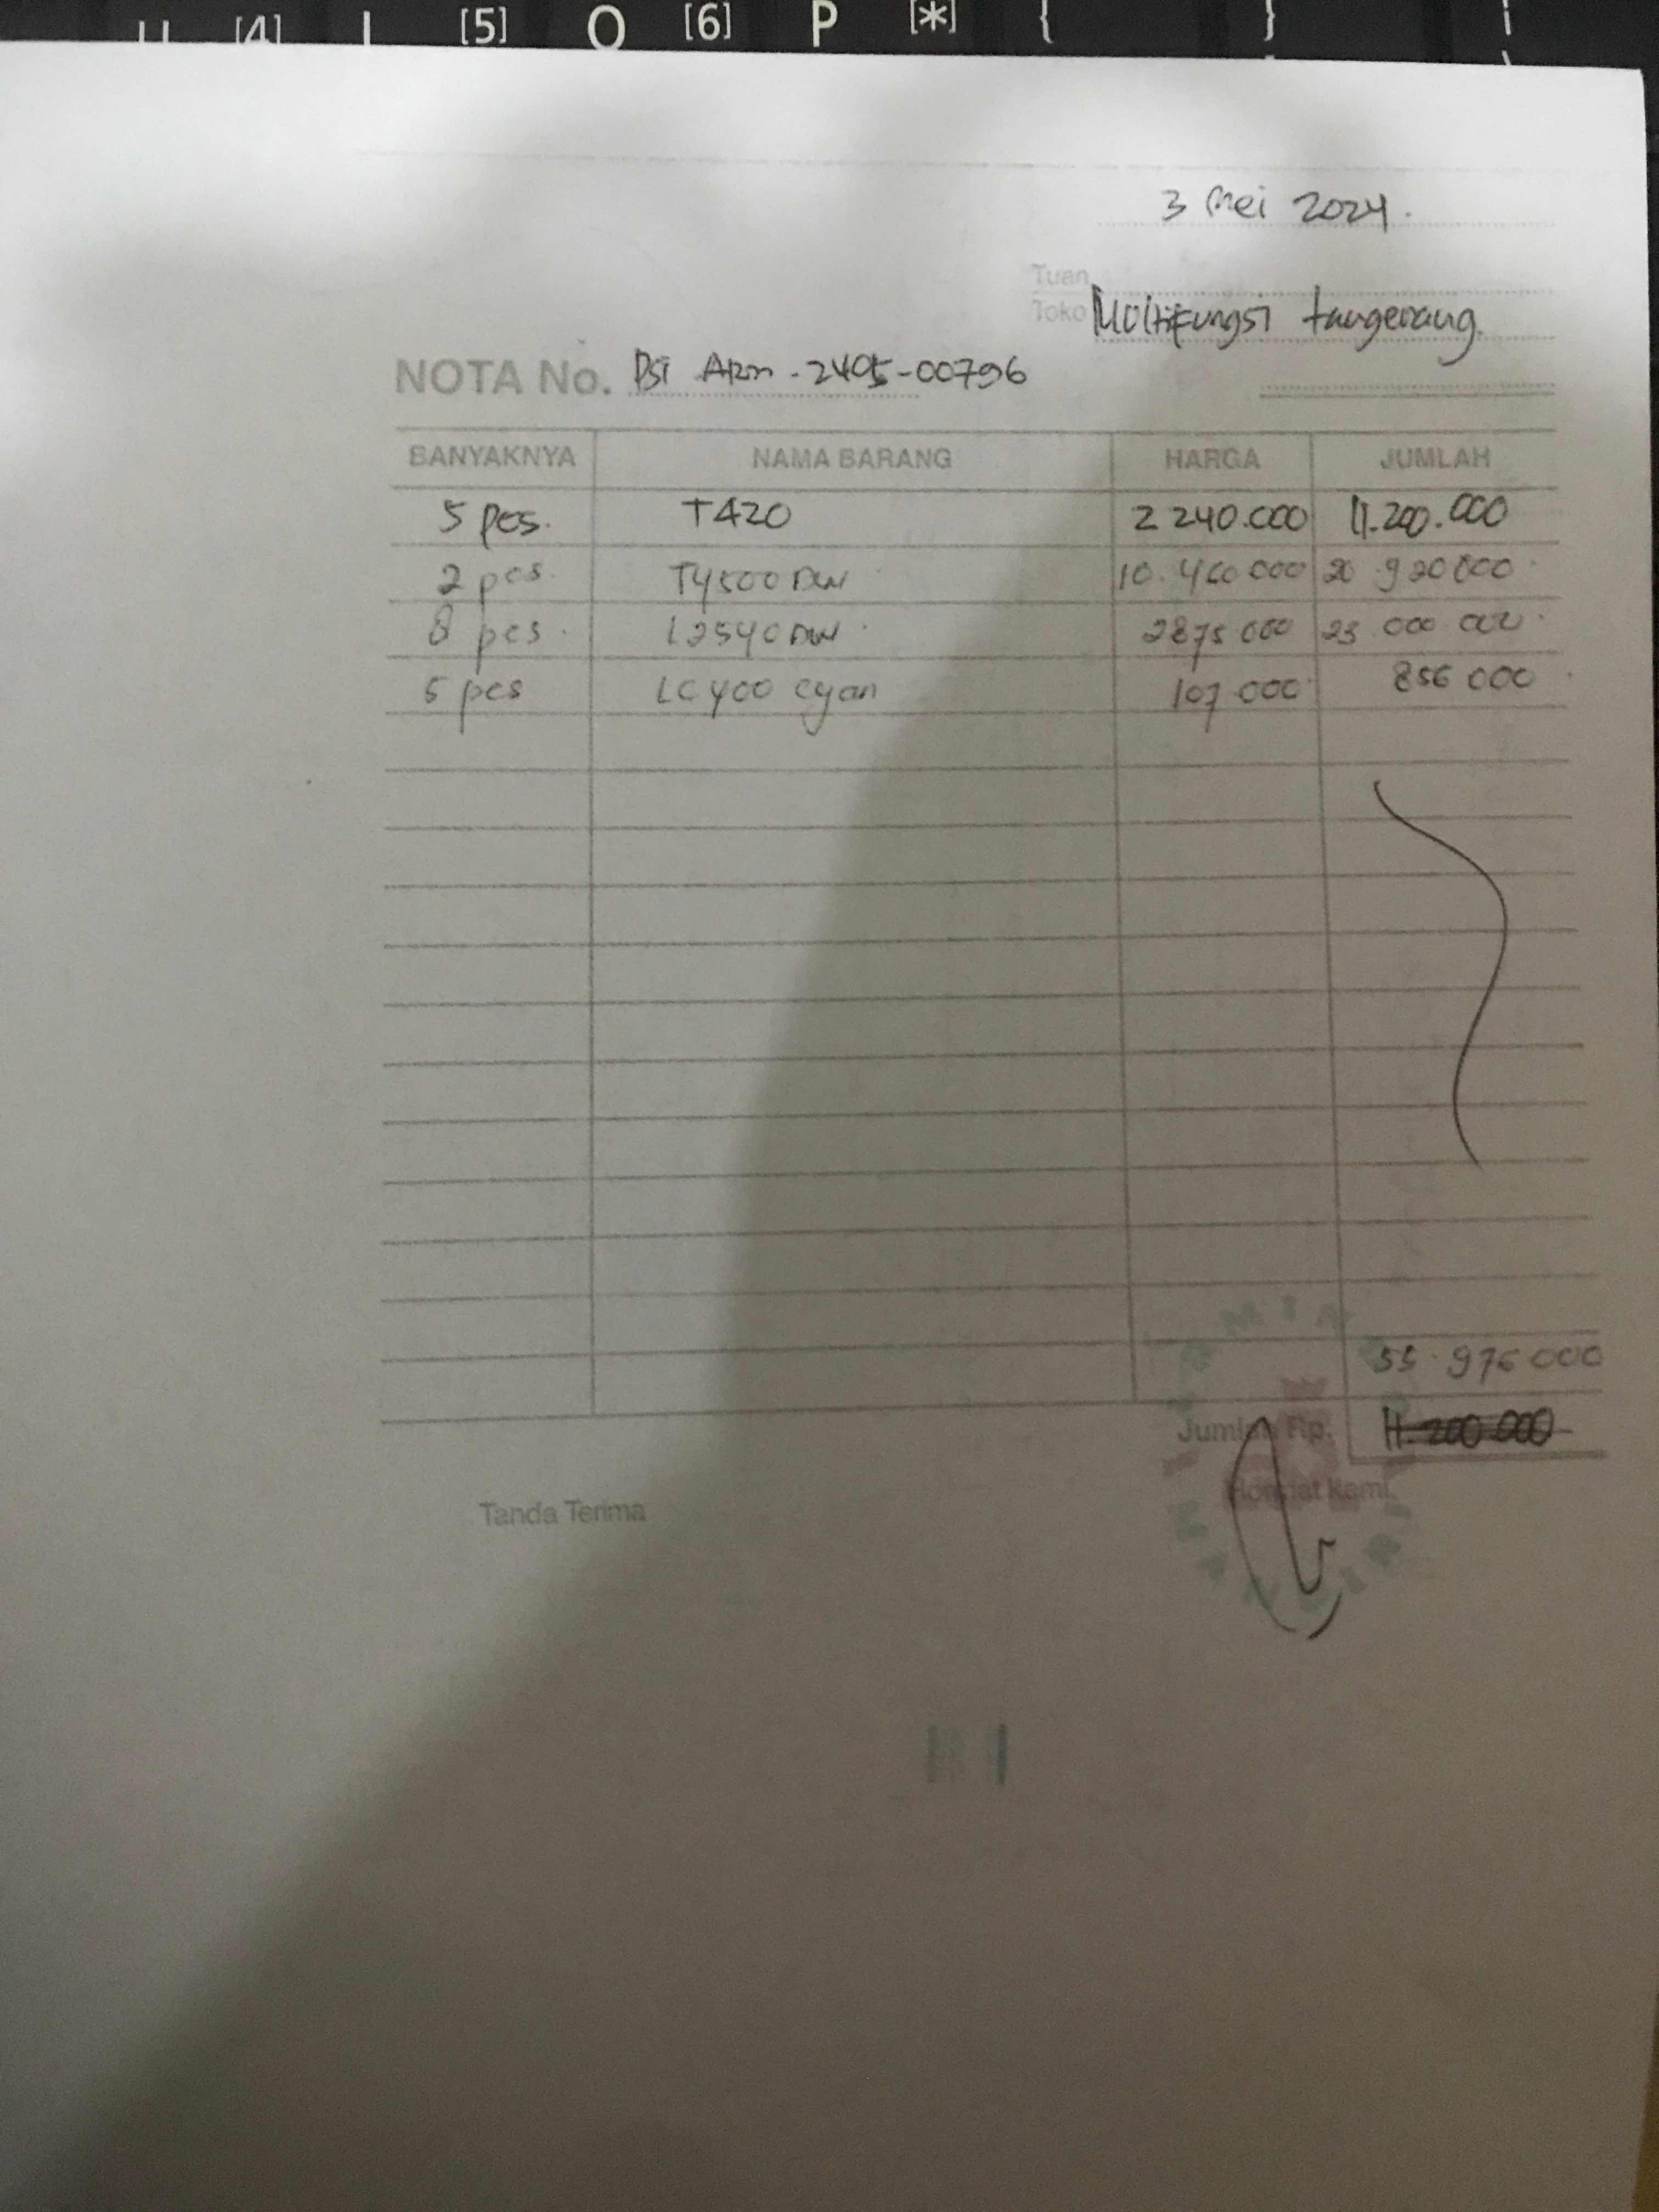 [4] I [5] O [6] P [*] { }
3 Mei 2024.
Tuan
Toko Multifungsi tangerang.
NOTA No. PSI Arm - 2405-00796
BANYAKNYA NAMA BARANG HARGA JUMLAH
5 pcs. T420 2 240.000 11.200.000
2 pcs. T4500 DW 10.460 000 20 920 000
8 pcs. L2540 DW 2875 000 23 000 000
5 pcs LC400 cyan 107 000 856 000
55.976 000
Jumlah Rp. 11.200.000
Tanda Terima Hormat kami,